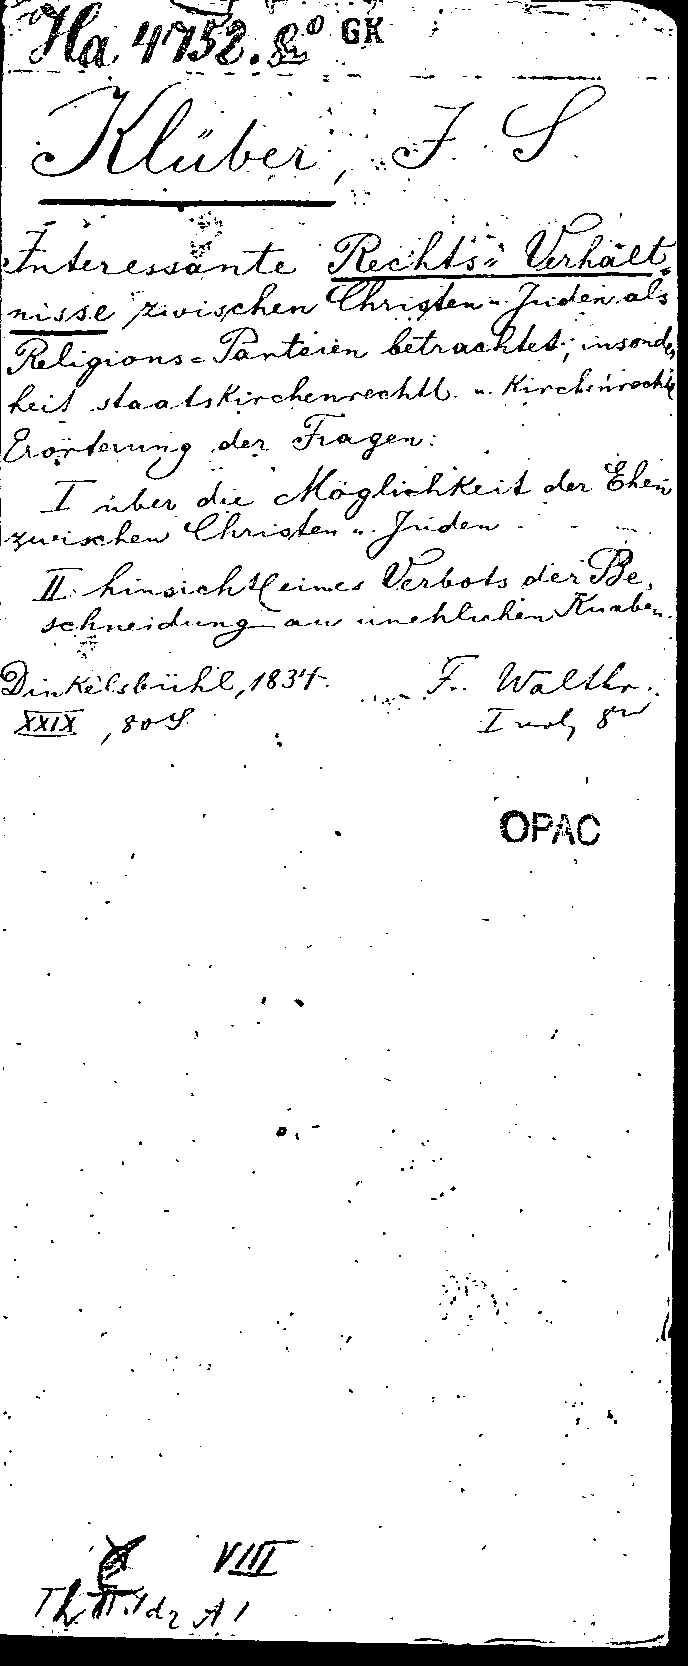 Ha. 4752. 8º GK
Klüber, J. S.
Interessante Rechts= Verhält=
nisse zwischen Christen u. Juden als
Religions=Parteien betrachtet; insonder
heit staatskirchenrechtl. u. Kirchenrechtl
Erörterung der Fragen:
I über die Möglichkeit der Ehen
zwischen Christen u. Juden.
II. hinsichtl eines Verbots der Be=
schneidung an unehlichen Knaben.
Dinkelsbühl, 1834. F. Walthr.
XXIX, 80 S. I vol, 8º
OPAC
VIII